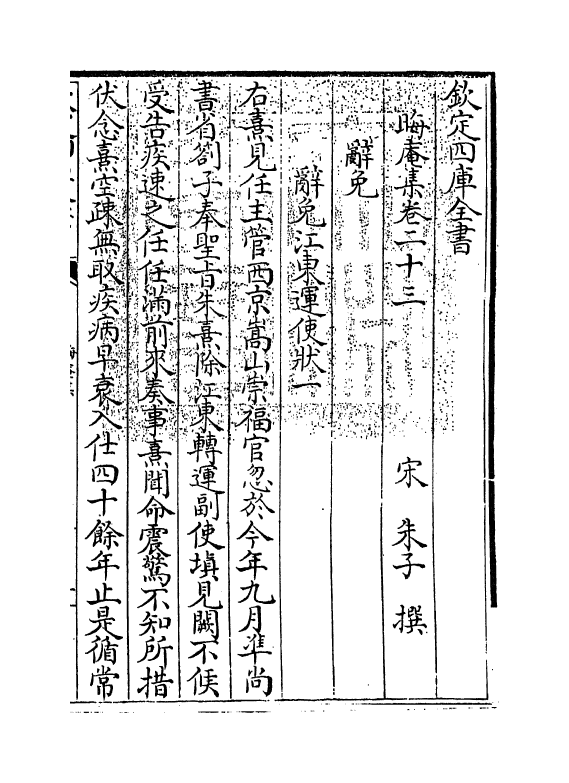 欽定四庫全書
晦庵集卷二十三　宋　朱子　撰
辭免
辭免江東運使狀一
右熹見任主管西京嵩山崇福宫忽於今年九月準尚
書省劄子奉聖旨朱熹除江東轉運副使填見闕不候
受告疾速之任任滿前來奏事熹聞命震驚不知所措
伏念熹空疎無取疾病早衰入仕四十餘年止是循常